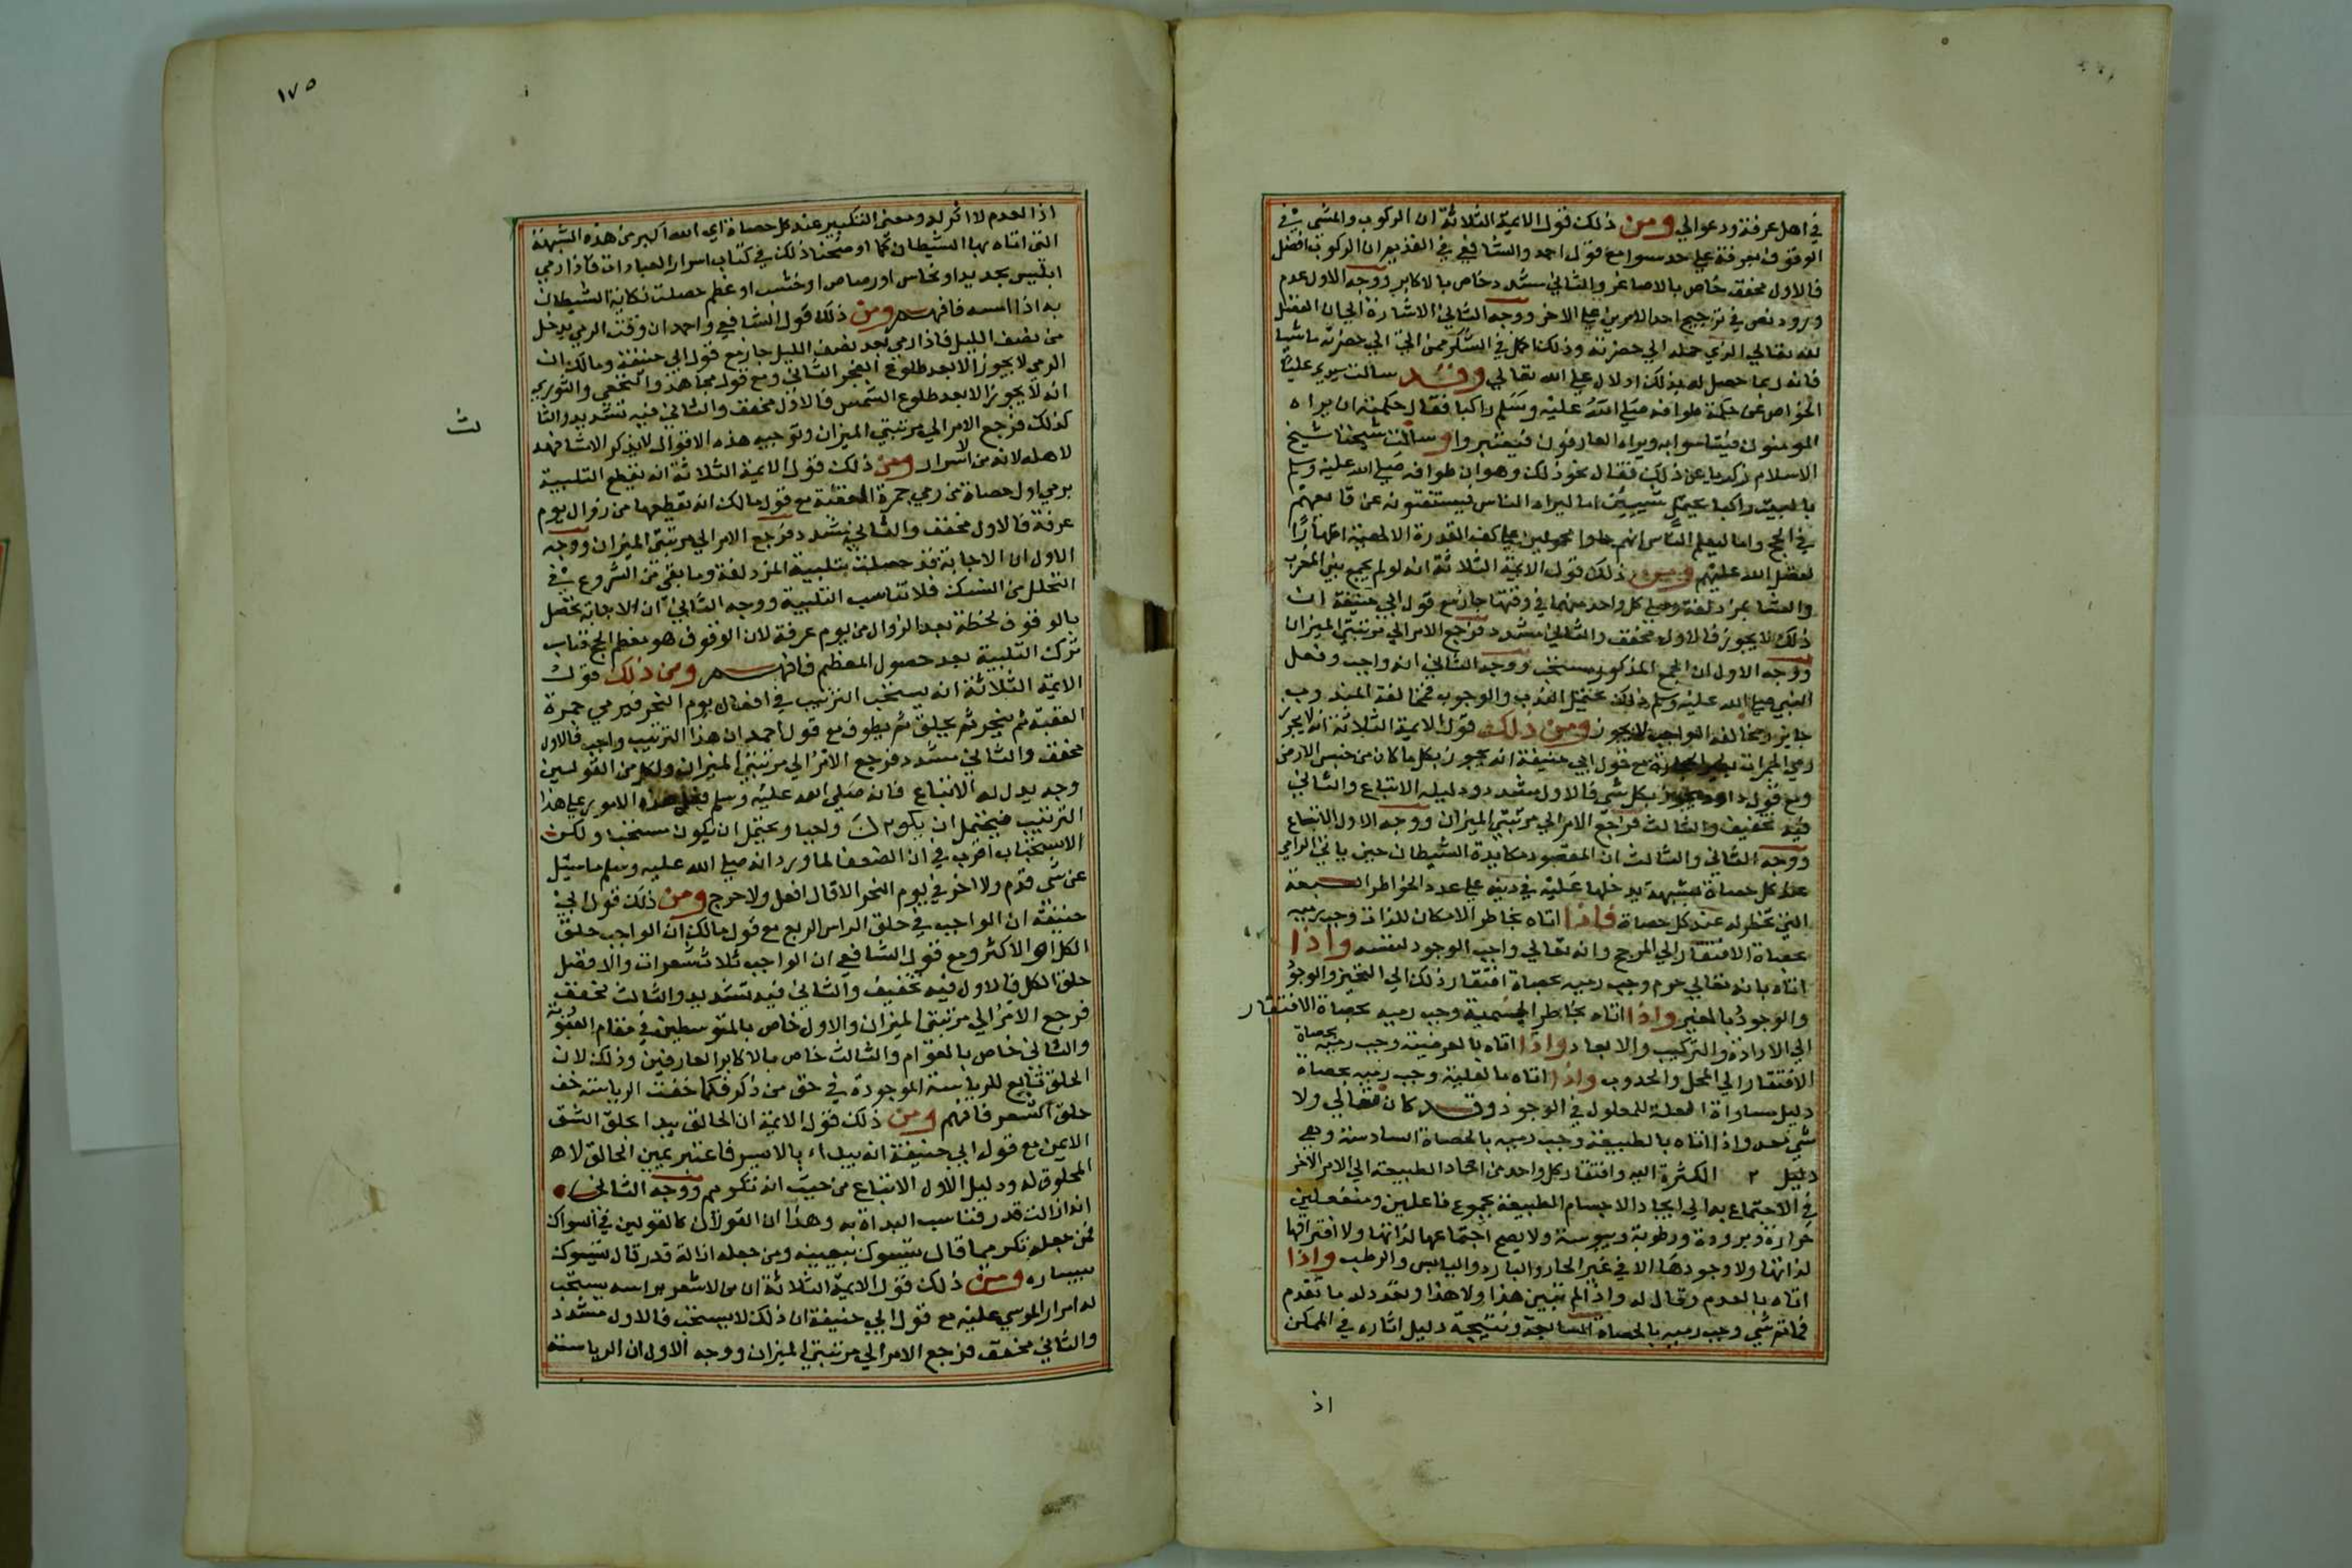 في اهل عرفة ودعوالي ومن ذلك قول الايمة الثلاثة ان الركوب والمشي في
الوقوف بعرفة علي حد سوا مع قول احمد والشافعي في القديم ان الركوب افضل
فالاول مخفف خاص بالاصاغر والثاني مشدد خاص بالاكابر ووجه الاول عدم
ورود نص في ترجيح احد الامرين علي الاخر ووجه الثاني الاشارة الي ان الفضل
لله تعالي الذي حمله الي حضرته وذلك اكمل في الشكر ممن اتي الي حضرته ماشيا
فانه ربما حصل له بذلك ادلال علي الله تعالي وقد سالت سيدي عليا
الخواص عن حكمة طوافه صلي الله عليه وسلم راكبا فقال حكمته ان يراه
المومنون فيتاسوا به ويراه العارفون فيعتبروا وسالت شيخنا شيخ
الاسلام زكريا عن ذلك فقال نحو ذلك وهو ان طوافه صلي الله عليه وسلم
بالبيت راكبا يحتمل شيئين اما ليراه الناس فيستفتونه عن وقايعهم
في الحج واما ليعلم الناس انهم جاوا محمولين علي كف القدرة الالهية اظهارا
لفضل الله عليهم ومن ذلك قول الايمة الثلاثة انه لو لم يجمع بين المغرب
والعشا بمزدلفة وصلي كل واحد منهما في وقتها جاز مع قول ابي حنيفة ان
ذلك لا يجوز فالاول مخفف والثاني مشدد فرجع الامر الي مرتبتي الميزان
ووجه الاول ان الجمع المذكور مستحب ووجه الثاني انه واجب وفعل
النبي صلي الله عليه وسلم ذلك يحتمل الندب والوجوب فمخالفة المندوب
جايز ومخالفة الواجب لا يجوز ومن ذلك قول الايمة الثلاثة انه لا يجوز
رمي الجمرات بغير الحجارة مع قول ابي حنيفة انه يجوز بكل ما كان من جنس الارض
ومع قول داود يجوز بكل شي فالاول مشدد ودليله الاتباع والثاني
فيه تخفيف والثالث فرجع الامر الي مرتبتي الميزان ووجه الاول الاتباع
ووجه الثاني والثالث ان المقصود مكايدة الشيطان حين ياتي الرامي
عند كل حصاة بشبهة يدخلها عليه في دينه علي عدد الخواطر السبعة
التي تخطر له عند كل حصاة فاذا اتاه بخاطر الامكان للذات وجب رميه
بحصاة الافتقار الي المرجح وانه تعالي واجب الوجود لنفسه واذا
اتاه بانه تعالي جرم وجب رميه بحصاة افتقار ذلك الي التحيز والوجود
والوجود بالغير واذا اتاه بخاطر الجسمية وجب رميه بحصاة الافتقار
الي الاداة والتركيب والابعاد واذا اتاه بالعرضية وجب رميه بحصاة
الافتقار الي المحل والحدوث واذا اتاه بالعلية وجب رميه بحصاة
دليل مساواة العلة للمعلول في الوجود وقد كان تعالي ولا
شي معه واذا اتاه بالطبيعة وجب رميه بالحصاة السادسة وهي
دليل ٢ الكثرة اليه وافتقار كل واحد من احاد الطبيعة الي الامر الاخر
في الاجتماع به الي ايجاد الاجسام الطبيعة مجموع فاعلين ومنفعلين
حرارة وبرودة ورطوبة ويبوسة ولا يصح اجتماعها لذاتها ولا افتراقها
لذاتها ولا وجودها الا في غير الحار والبارد واليابس والرطب واذا
اتاه بالعدم وقال له واذا لم تبين هذا ولا هذا ويعدد له ما تقدم
فما ثم شي وجب رميه بالحصاة السابعة ونتيجة دليل اثاره في الممكن
اذ
١٧٥
اذ العدم لا اثر له ومعني التكبير عند كل حصاة اي الله اكبر من هذه الشبهة
التي اتاه بها الشيطان كما اوضحنا ذلك في كتاب اسرار العبادات فاذا رمي
ابليس بحديد او نحاس او رصاص او خشب او عظم حصلت نكاية الشيطان
به اذا السه فافهم ومن ذلك قول الشافعي واحمد ان وقت الرمي يدخل
من نصف الليل فاذا رمي بعد نصف الليل جاز مع قول ابي حنيفة ومالك ان
الرمي لا يجوز الا بعد طلوع الفجر الثاني ومع قول مجاهد والنخعي والثوري
انه لا يجوز الا بعد طلوع الشمس فالاول مخفف والثاني فيه تشديد والثا
لث
كذلك فرجع الامر الي مرتبتي الميزان وتوجيه هذه الاقوال لا يذكر الا مشافهة
لاهله لانه من الاسرار ومن ذلك قول الايمة الثلاثة انه يقطع التلبية
برمي اول حصاة من رمي جمرة العقبة مع قول مالك انه يقطعها من زوال يوم
عرفة فالاول مخفف والثاني مشدد فرجع الامر الي مرتبتي الميزان ووجه
الاول ان الاجابة قد حصلت بتلبية المزدلفة وما بقي من الشروع في
التحلل من النسك فلا تناسب التلبية ووجه الثاني ان الاجابة تحصل
بالوقوف لحظة بعد الزوال من يوم عرفة لان الوقوف هو معظم الحج فناسب
ترك التلبية بعد حصول المعظم فافهم ومن ذلك قول
الايمة الثلاثة انه يستحب الترتيب في افعال يوم النحر فيرمي جمرة
العقبة ثم ينحر ثم يحلق ثم يطوف مع قول احمد ان هذا الترتيب واجب فالاول
مخفف والثاني مشدد فرجع الامر الي مرتبتي الميزان ولكل من القولين
وجه يدل له الاتباع فانه صلي الله عليه وسلم فعل هذه الامور علي هذا
الترتيب فيحتمل ان يكون واجبا ويحتمل ان يكون مستحبا ولكن
الاستحباب اقرب في ان الضعفا لما ورد انه صلي الله عليه وسلم ما سيل
عن شي قدم ولا اخر في يوم النحر الا قال افعل ولا حرج ومن ذلك قول ابي
حنيفة ان الواجب في حلق الراس الربع مع قول مالك ان الواجب حلق
الكل او الاكثر ومع قول الشافعي ان الواجب ثلاث شعرات والافضل
حلق الكل فالاول فيه تخفيف والثاني فيه تشديد والثالث مخفف
فرجع الامر الي مرتبتي الميزان والاول خاص بالمتوسطين في مقام العبودية
والثاني خاص بالعوام والثالث خاص بالاكابر العارفين وذلك لان
الحلق تابع للرياسة الموجودة في حق من ذكر فكما خفت الرياسة خف
حلق الشعر فافهم ومن ذلك قول الايمة ان الحالق يبدا بحلق الشق
الايمن مع قول ابي حنيفة انه يبداء بالايسر فاعتبر يمين الحالق لا
المحلوق له ودليل الاول الاتباع من حيث انه تكريم ووجه الثاني
انه ازالت قدر فناسب البداة به وهذان القولان كالقولين في السواك
فمن جعله تكريما قال يتسوك بيمينه ومن جعله ازالة قدر قال يتسوك
بيساره ومن ذلك قول الايمة الثلاثة ان من لا شعر براسه يستحب
له امرار الموسي عليه مع قول ابي حنيفة ان ذلك لا يستحب فالاول مشدد
والثاني مخفف فرجع الامر الي مرتبتي الميزان ووجه الاول ان الرياسة